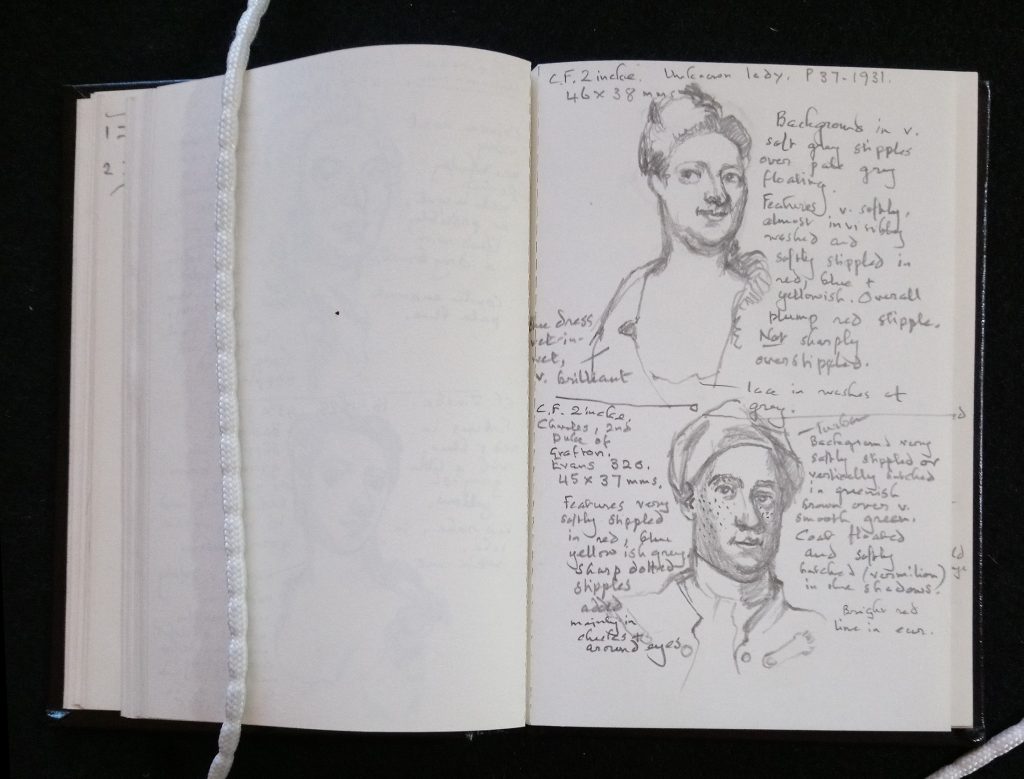 C.F. Zincke. Unknown lady. P 37-1931.
46 x 38 mms
Background in v.
soft gray stipples
over pale gray
floating.
Features v. softly,
almost invisibly
washed and
softly stippled in
red, blue +
yellowish. Overall
plump red stipple.
Not sharply
overstippled.
dress
wet-in-
wet,
v. brilliant
lace in washes of
gray.
C.F. Zincke.
Charles, 2nd
Duke of
Grafton.
Evans 326.
45 x 37 mms.
Features very
softly stippled
in red, blue
yellowish grey
sharp dotted
stipples
added
mainly in
cheeks +
around eyes
Turban
Background very
softly stippled or
vertically hatched
in greenish
brown over v.
smooth green.
Coat floated
and softly
hatched (vermilion)
in the shadows.
Bright red
line in ear.